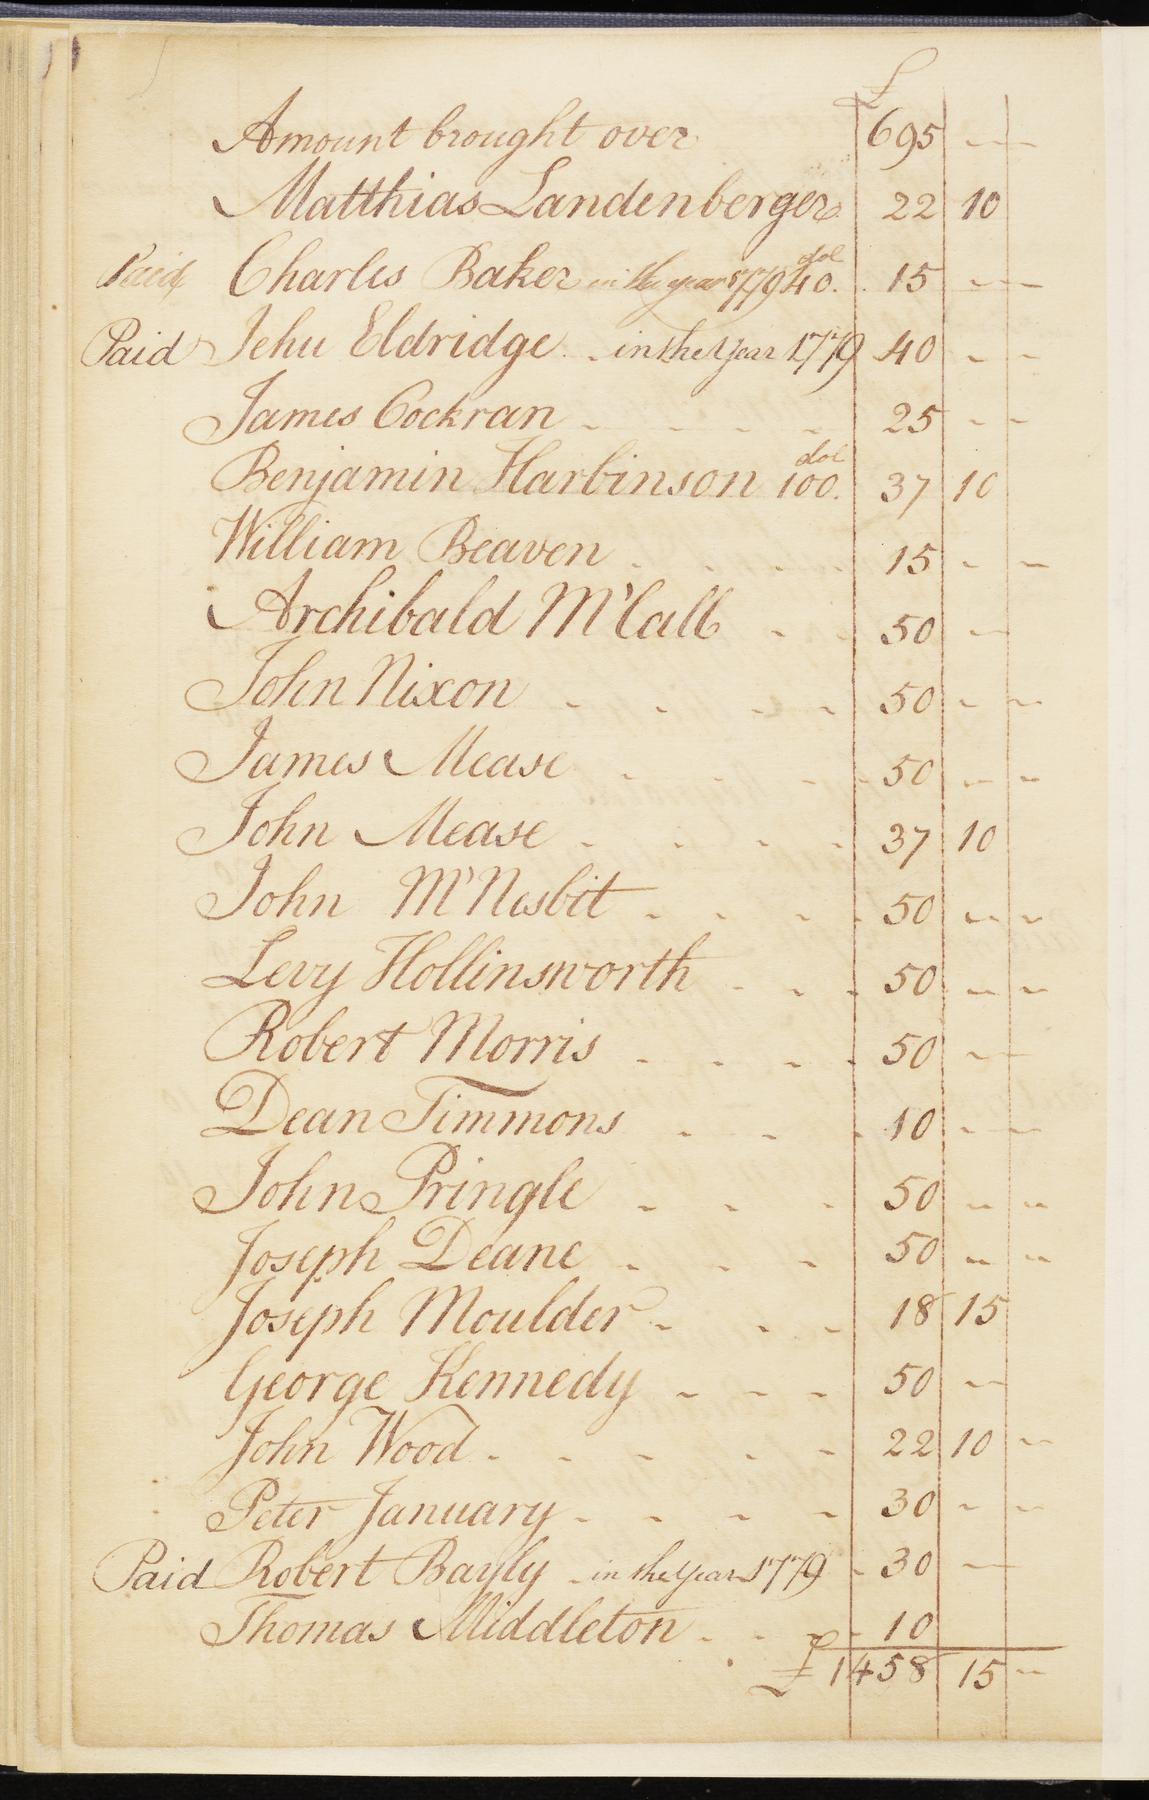 £
Amount brought over 695 - -
Matthias Landenberger 22 10
Paid Charles Baker in the year 1779 40 dol. 15 - -
Paid Jehu Eldridge - in the Year 1779 40 - -
James Cockran - - - - 25 - -
Benjamin Harbinson 100 dol. 37 10
William Beaven - - - - 15 - -
Archibald M'Call - - 50 -
John Nixon - - - - 50 - -
James Mease - - - - 50 - -
John Mease - - - - 37 10
John M'Nesbit - - - - 50 - -
Levy Hollinsworth - - - 50 - -
Robert Morris - - - - 50 -
Dean Timmons - - - 10 - -
John Pringle - - - 50 - -
Joseph Deane - - - 50 - -
Joseph Moulder - - - 18 15
George Kennedy - - - 50 -
John Wood - - - - - 22 10 -
Peter January - - - - 30 - -
Paid Robert Bayly - in the Year 1779 - 30 -
Thomas Middleton - - - 10
£ 1458 15 -